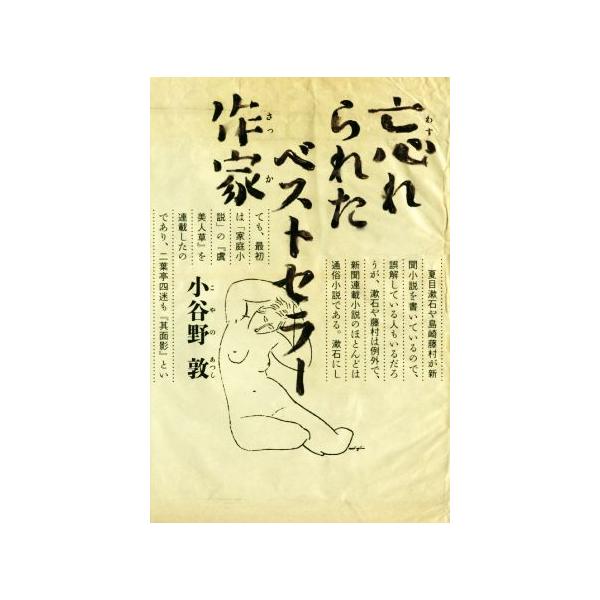 忘れ
られた
ベストセラー
作家
わす
さっ
か
夏目漱石や島崎藤村が新
聞小説を書いているので、
誤解している人もいるだろ
うが、漱石や藤村は例外で、
新聞連載小説のほとんどは
通俗小説である。漱石にし
ても、最初
は「家庭小
説」の『虞
美人草』を
連載したの
であり、二葉亭四迷も『其面影』とい
小谷野 敦
こやの
あつし